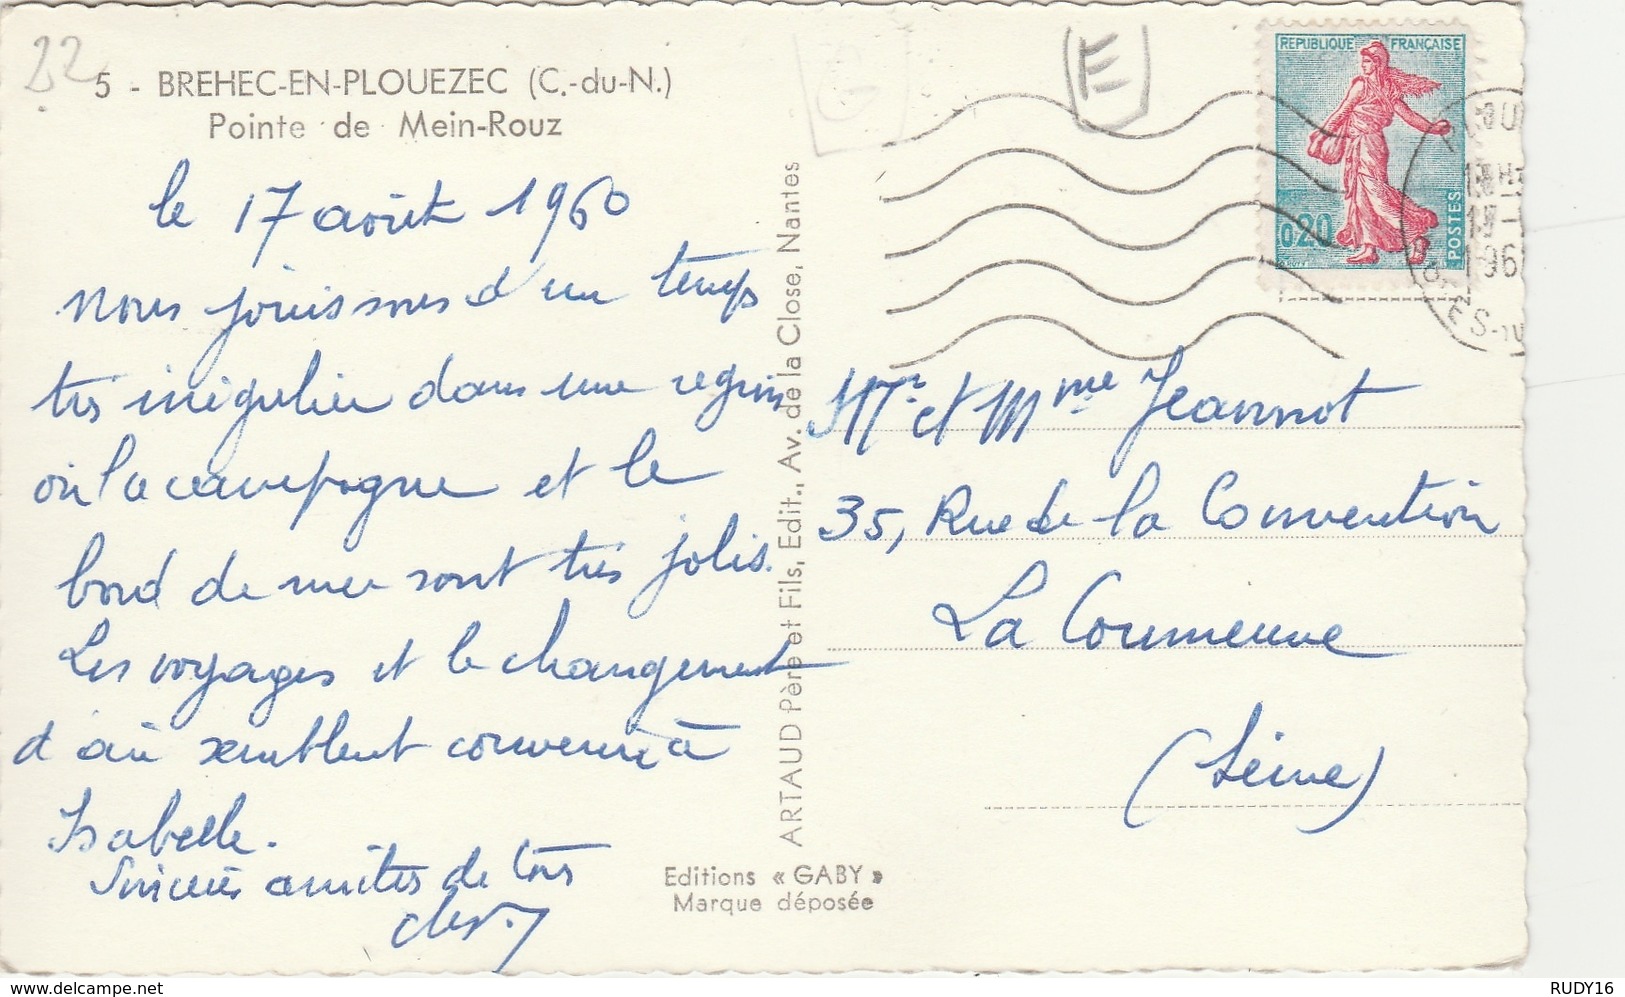 22
5 - BREHEC-EN-PLOUEZEC (C.-du-N.)
Pointe de Mein-Rouz
le 17 août 1960
Nous jouissons d'un temps
très irrégulier dans une région
où la campagne et le
bord de mer sont très jolis.
Les voyages et le changement
d'air semblent convenir à
Isabelle.
Sincères amitiés de tous
ARTAUD Père et Fils, Edit., Av. de la Close, Nantes
Editions « GABY »
Marque déposée
G
E
REPUBLIQUE FRANÇAISE
0,20
POSTES
Mr et Mme Jeannot
35, Rue de la Convention
La Courneuve
(Seine)
www.delcampe.net
RUDY16